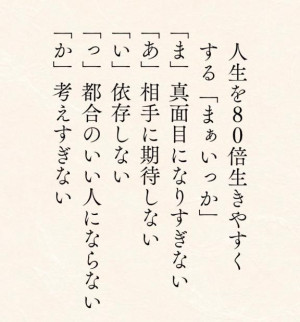 人生を80倍生きやすく
する「まぁいっか」
「ま」真面目になりすぎない
「あ」相手に期待しない
「い」依存しない
「っ」都合のいい人にならない
「か」考えすぎない